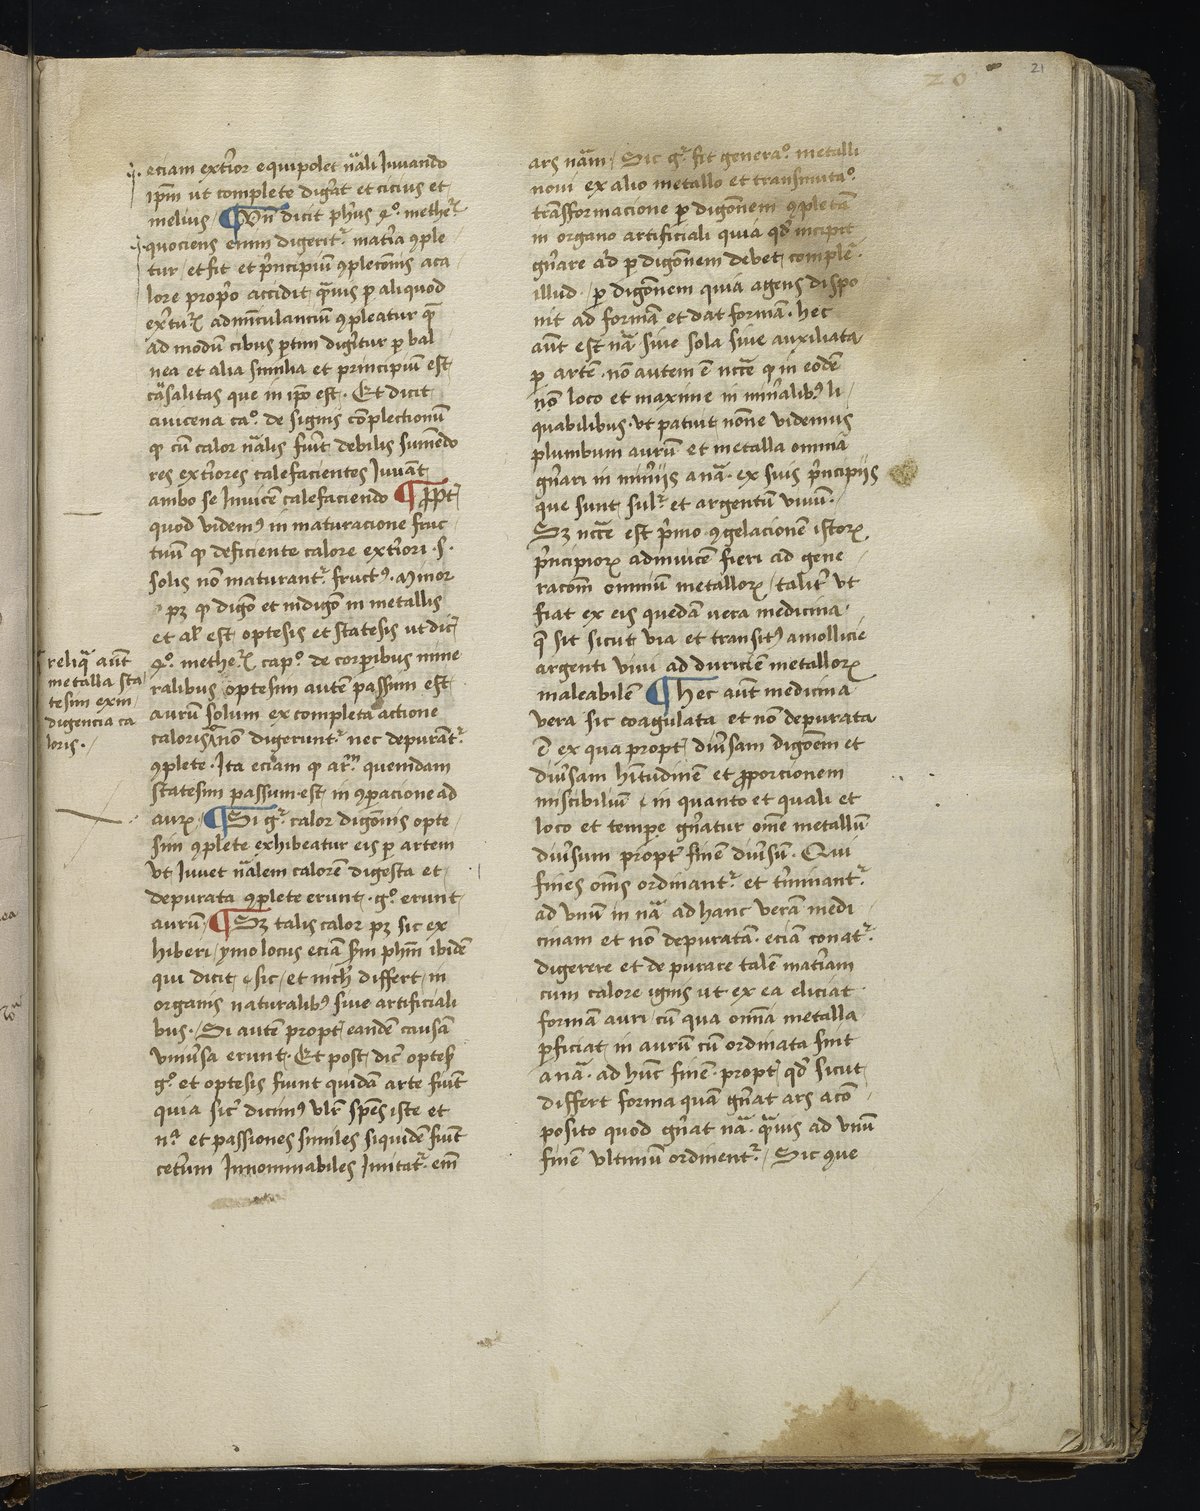 20
21
eciam extˀior equipolet nãli Iuvando
ip̃m ut complete digˀat et cicius et
melius ¶ Vñ dicit ph̃us 4ᵒ metheꝵ
quociens enim digeritᷣ matˀia ꝯple
tur / et fit et pˀncipiũ ꝯplecõnis a ca
lore propˀo accidit qᷓuis ꝑ aliquod
extˀiꝵ adminiculanciũ ꝯpleatur qᷓ
ad modũ cibus ꝑtim digˀitur ꝑ bal
nea et alia similia et principiũ est
cãsalitas que in ip̃o est · Et dicit
auicena caᵒ de signis cõplectionũ
ꝙ cũ calor nãlis fuit debilis sumẽdo
res extˀiores calefacientes Iuvãt
ambo se Inuicẽ calefaciendo ¶ ꝓpt̃
quod videmꝰ in maturacione fruc
tuũ ꝙ deficiente calore extˀiori · s ·
solis non maturantᷣ fructꝰ · Minor
pꝫ ꝙ digõ et indigõ in metallis
et al̃ est optesis et statesis ut dic̃
4ᵒ metheꝵ capᵒ de corꝑibus mine
ralibus optesim autẽ passum est
aurũ solum ex completa actione
caloris non digeruntᷣ nec depurãtᷣ
reliqᷓ aũt
metalla sta
tesim ex in
digencia ca
loris ·
ꝯplete · Ita eciam ꝙ arᷣᵐ quemdam
statesim passum est in ꝯꝑacione ad
auꝵ · ¶ Si gᷣ calor digõnis opte
sim ꝯplete exhibeatur eis ꝑ artem
ut Iuvet nãlem calorẽ digesta et
depurata ꝯplete erunt · gᵒ erunt
aurũ · ¶ Sꝫ talis calor pꝫ sic ex
hiberi / ymo locus eciã sm̃ ph̃m ibidẽ
qui dicit · sic / et nich̃ differt in
organis naturalibꝰ siue artificiali
bus · Si autẽ propt̃ eandẽ causã
vniũsa erunt · Et post dicˀ optes̃
gᵒ et optesis fiunt quidã arte fiũt
quia sicˀ dicimꝰ vlˀr sp̃es iste et
nᷓ et passiones similes siquidẽ fiũt
cetˀum Innominabiles Imitatᷣ eni̅
ars nãm / Sic gᷣ fit generaᵒ metalli
noui ex alio metallo et transmutaᵒ
trãsformacione ꝑ digõnem ꝯpletã
in organo artificiali quia qd̃ incipit
gñare a͛d ꝑ digõnem debet complẽ ·
illud · ꝑ digõnem quia agens dispo
nit ad formã et dat formã · hec
aũt est nã siue sola siue auxiliata
ꝑ artẽ · nõ autem ẽ nc̃ce ꝙ in eodẽ
nõ loco et maxime in minˀalibꝰ li
quabilibus · ut patuit nõne videmus
plumbum aurũ et metalla omnia
gñari in minˀijs a nã · ex suis pˀncipijs
que sunt sulᷣ et argentũ viuũ ·
Sꝫ nc̃ce est pˀmo ꝯgelacionẽ istoꝵ
pˀncipioꝵ adinuicẽ fieri ad gene
racõm omniũ metalloꝵ / talitˀ ut
fiat ex eis quedã vera medicina ·
q̃ sit sicut via et transitꝰ a mollicie
argenti viui ad duriciẽ metalloꝵ
maleabilẽ ¶ hec aũt medicina
vera sic coagulata et nõ depurata
ẽ ex qua propt̃ diũsam digõẽm et
diũsam hĩtudinẽ et ꝓporcionem
miscibiliũ · in quanto et quali et
loco et tempe gñatur om̃e metallũ
diũsum proptˀ finẽ diũsũ · Qui
fines om̃s ordinantᷣ et tˀminantᷣ
ad vnũ in nã ad hanc verã medi
cinam et nõ depuratã · eciã conatᷣ
digerere et depurare talẽ matˀiam
cum calore ignis ut ex ea eliciat
formã auri / cũ qua om̃ia metalla
ꝑficiat in aurũ cũ ordinata sint
a nã · ad hũc finẽ · propt̃ qd̃ sicut
differt forma quam gñat ars a cõ
posito quod gñat nã · qᷓuis ad vnũ
finẽ vltimũ ordinentᷣ / Sic ꝯue